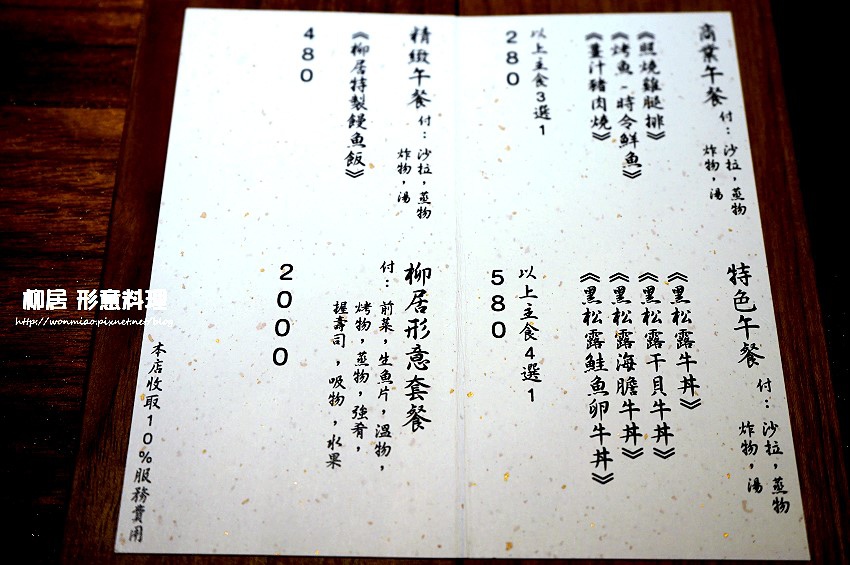 商業午餐
付：沙拉，蒸物
炸物，湯
《照燒雞腿排》
《烤魚-時令鮮魚》
《薑汁豬肉燒》
以上主食3選1
280
特色午餐
付：沙拉，蒸物
炸物，湯
《黑松露牛丼》
《黑松露干貝牛丼》
《黑松露海膽牛丼》
《黑松露鮭魚卵牛丼》
以上主食4選1
580
精緻午餐
付：沙拉，蒸物
炸物，湯
《柳居特製饅魚飯》
480
柳居形意套餐
付：前菜，生魚片，溫物，
烤物，蒸物，強肴，
握壽司，吸物，水果
2000
本店收取10%服務費用
柳居 形意料理
http://wonmiao.pixnet.net/blog